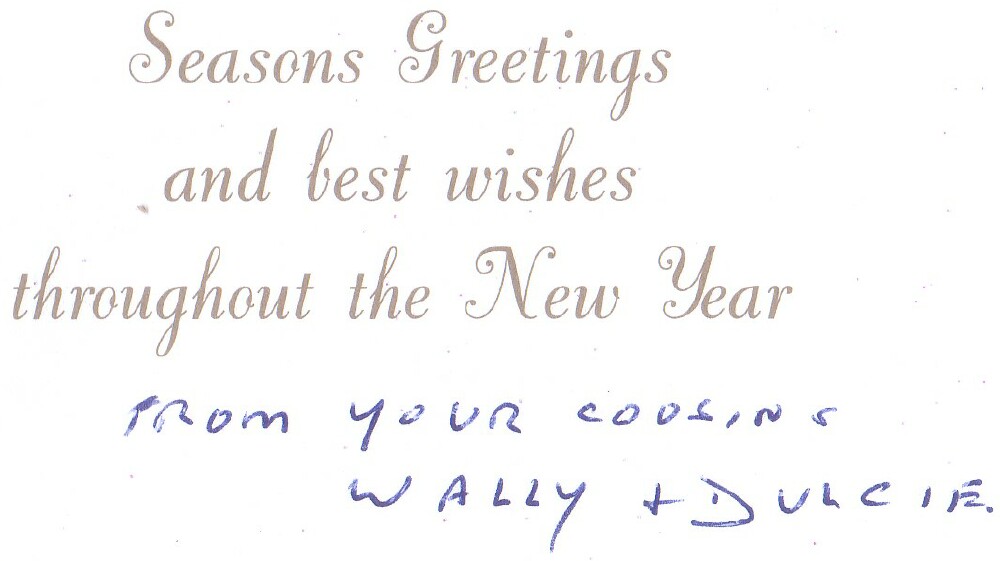 Seasons Greetings
and best wishes
throughout the New Year
FROM YOUR COUSINS
WALLY + DULCIE.